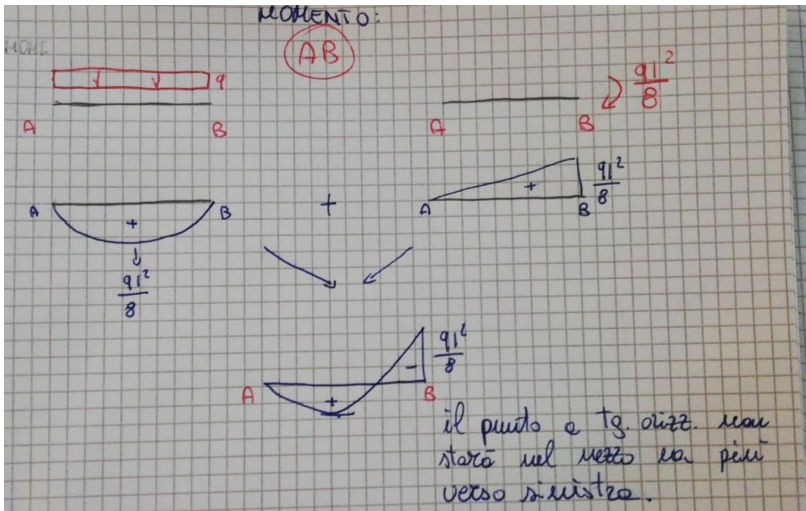 MOMENTO:
AB
q
A
B
A
B
ql²
8
A
+
B
+
A
+
B
ql²
8
ql²
8
A
+
−
B
ql²
8
il punto a tg. orizz. non
starà nel mezzo ma più
verso sinistra.